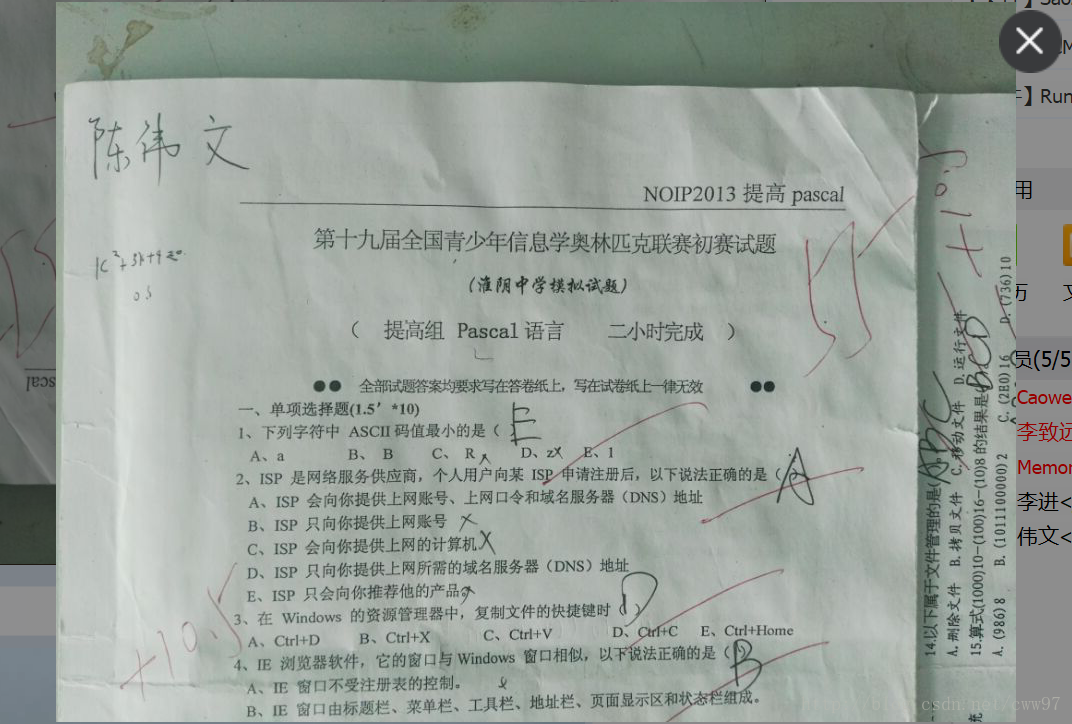 陈伟文
NOIP2013 提高 pascal
第十九届全国青少年信息学奥林匹克联赛初赛试题
(淮阴中学模拟试题)
( 提高组 Pascal 语言 二小时完成 )
●● 全部试题答案均要求写在答卷纸上，写在试卷纸上一律无效 ●●
一、单项选择题(1.5′*10)
1、下列字符中 ASCII 码值最小的是( E
A、a B、B C、R D、z E、1
2、ISP 是网络服务供应商，个人用户向某 ISP 申请注册后，以下说法正确的是( A
A、ISP 会向你提供上网账号、上网口令和域名服务器（DNS）地址
B、ISP 只向你提供上网账号
C、ISP 会向你提供上网的计算机
D、ISP 只向你提供上网所需的域名服务器（DNS）地址
E、ISP 只会向你推荐他的产品
3、在 Windows 的资源管理器中，复制文件的快捷键时( D )
A、Ctrl+D B、Ctrl+X C、Ctrl+V D、Ctrl+C E、Ctrl+Home
4、IE 浏览器软件，它的窗口与Windows 窗口相似，以下说法正确的是( B
A、IE 窗口不受注册表的控制。
B、IE 窗口由标题栏、菜单栏、工具栏、地址栏、页面显示区和状态栏组成。
+10.5
55
14.以下属于文件管理的是( ABC
A. 删除文件 B. 拷贝文件 C. 移动文件 D. 运行文件
15.算式(1000)10-(100)16-(10)8 的结果是( BCD
A. (986)8 B. (1011100000)2 C. (2E0)16 D. (736)10
】Run
用
历
员(5/5
Caowe
李致远
Memor
李进<
伟文<